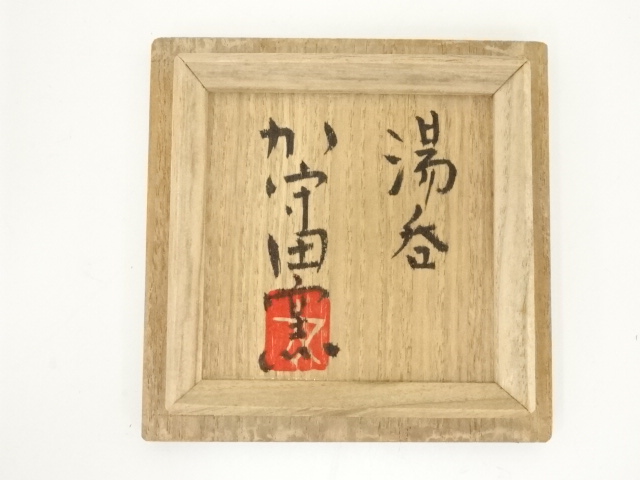 湯呑
加守田窯